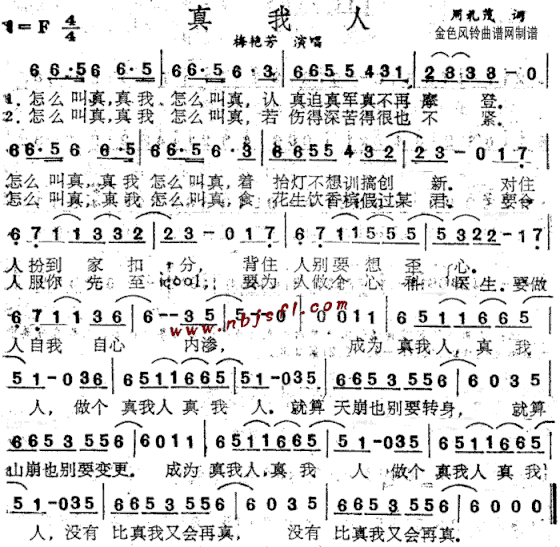 真 我 人
1=F 4/4
周礼茂 词
梅艳芳 演唱
金色风铃曲谱网制谱
6 6·56 6·5 | 6 6·5 6·3 | 6 6 5 5 4 3 1 | 2 3 3 3 - 0
1. 怎么叫真,真我 怎么叫真,认 真迫真军真不再 摩 登.
2. 怎么叫真,真我 怎么叫真,若 伤得深苦得很也 不 紧.
6 6·5 6 6·5 | 6 6·5 6·3 | 6 6 5 5 4 3 2 | 2 3 - 0 1 7
怎么叫真,真我 怎么叫真,着 抬灯不想训搞创 新. 对住
怎么叫真,真我 怎么叫真,食 花生饮香槟假过某 君. 要令
6 7 1 1 3 3 2 | 2 3 - 0 1 7 | 6 7 1 1 5 5 5 | 5 3 2 2 - 1 7
人扮到 家 扣 分, 背住 人别要 想 歪 心.
人服你 先 至 cool, 要为 人做个 心 科 医生.要做
6 7 1 1 3 6 | 6 - - 3 5 | 5 - - 0 | 0 0 1 1 | 6 5 1 1 6 6 5
www.nbfsfl.com
人自我 自心 内渗, 成为 真我人,真 我
5 1 - 0 3 6 | 6 5 1 1 6 6 5 | 5 1 - 0 3 5 | 6 6 5 3 5 5 6 | 6 0 3 5
人, 做个 真我人真 我 人. 就算 天崩也别要转身, 就算
6 6 5 3 5 5 6 | 6 0 1 1 | 6 5 1 1 6 6 5 | 5 1 - 0 3 5 | 6 5 1 1 6 6 5
山崩也别要变更. 成为 真我人,真我 人 做个 真我人 真我
5 1 - 0 3 5 | 6 6 5 3 5 5 6 | 6 0 3 5 | 6 6 5 3 5 5 6 | 6 0 0 0
人, 没有 比真我又会再真, 没有 比真我又会再真.